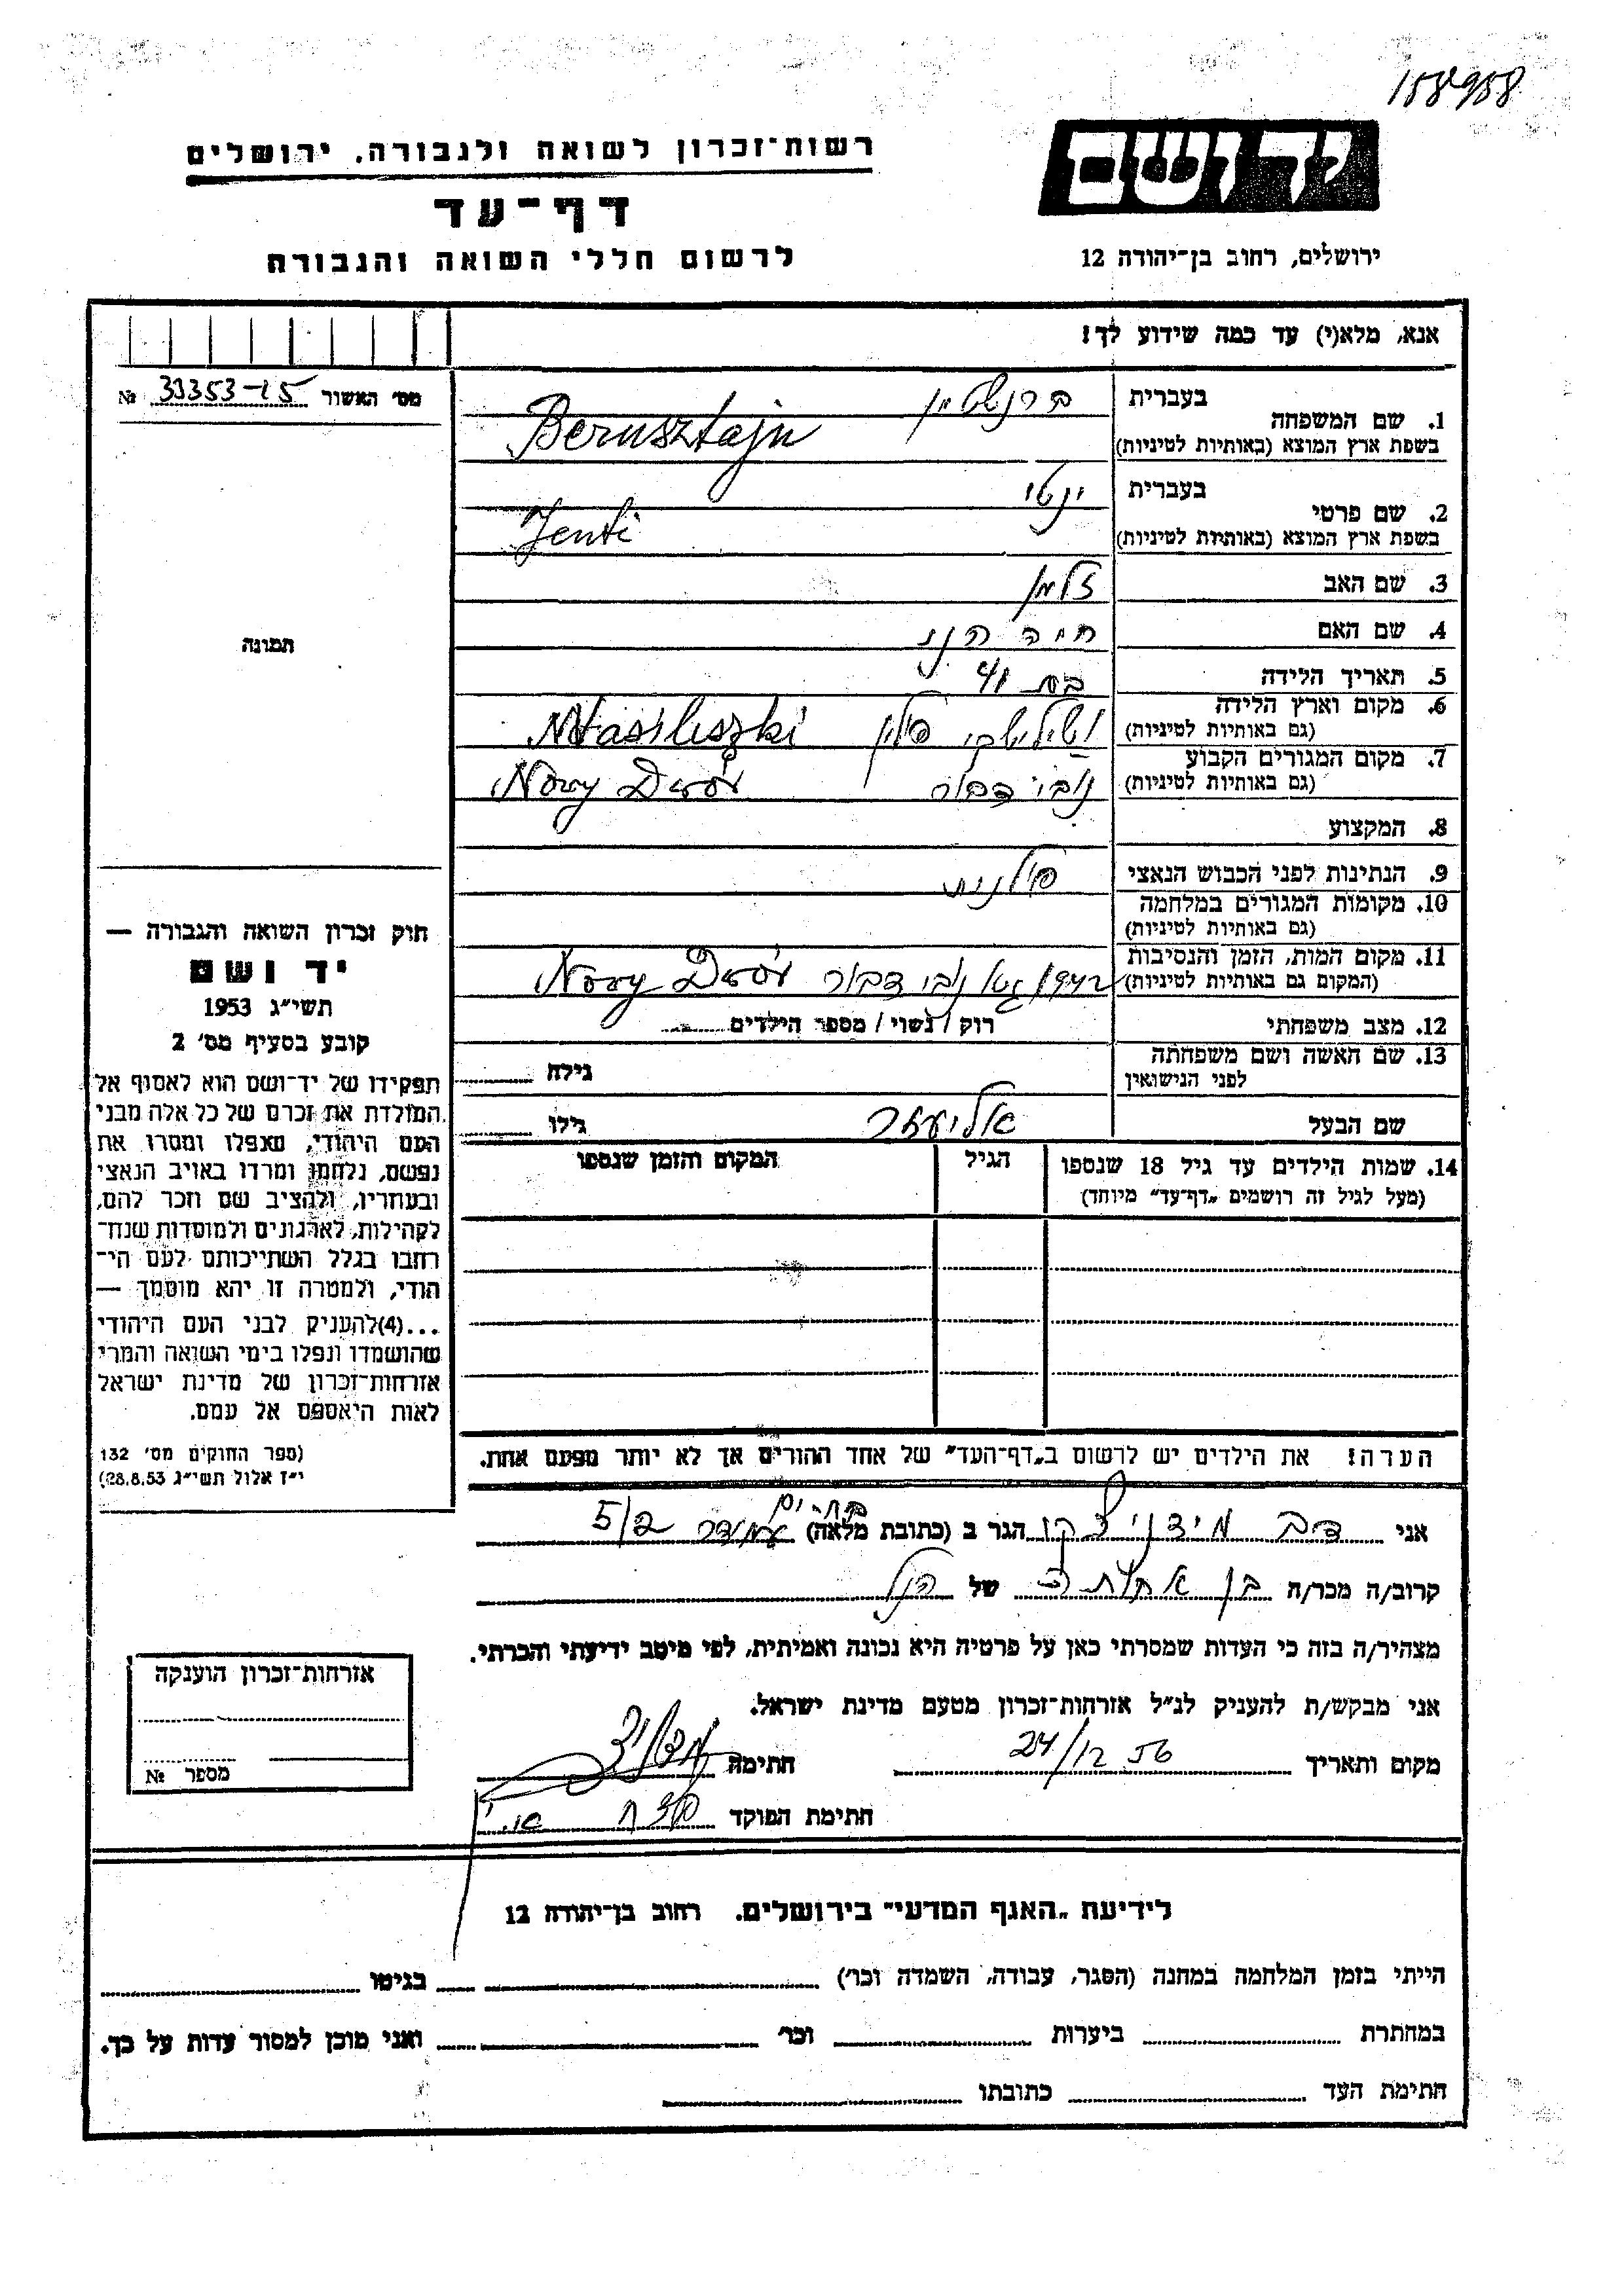 158958
יד ושם
רשות־זכרון לשואה ולגבורה, ירושלים
דף־עד
לרשום חללי השואה והגבורה
ירושלים, רחוב בן־יהודה 12
אנא, מלא(י) עד כמה שידוע לך!
מס׳ האשור 33353-15 №
תמונה
1. שם המשפחה
בעברית ברנשטיין
בשפת ארץ המוצא (באותיות לטיניות) Bernsztajn
2. שם פרטי
בעברית ינטי
בשפת ארץ המוצא (באותיות לטיניות) Jenti
3. שם האב זלמן
4. שם האם חיה
5. תאריך הלידה בת 41
6. מקום וארץ הלידה
(גם באותיות לטיניות) וסילישקי פולין Wasiliszki
7. מקום המגורים הקבוע
(גם באותיות לטיניות) נובי דבור Nowy Dwór
8. המקצוע
9. הנתינות לפני הכבוש הנאצי פולנית
10. מקומות המגורים במלחמה
(גם באותיות לטיניות)
11. מקום המות, הזמן והנסיבות
(המקום גם באותיות לטיניות) 1942 גטו נובי דבור Nowy Dwór
12. מצב משפחתי רוק / נשוי / מספר הילדים
13. שם האשה ושם משפחתה
לפני הנישואין גילה
שם הבעל אליעזר גילו
14. שמות הילדים עד גיל 18 שנספו
(מעל לגיל זה רושמים „דף־עד״ מיוחד)
הגיל
המקום והזמן שנספו
הערה! את הילדים יש לרשום ב„דף־העד״ של אחד ההורים אך לא יותר מפעם אחת.
חוק זכרון השואה והגבורה —
יד ושם
תשי״ג 1953
קובע בסעיף מס׳ 2
תפקידו של יד־ושם הוא לאסוף אל
המולדת את זכרם של כל אלה מבני
העם היהודי, שנפלו ומסרו את
נפשם, נלחמו ומרדו באויב הנאצי
ובעוזריו, ולהציב שם וזכר להם,
לקהילות, לארגונים ולמוסדות שנח־
רבו בגלל השתייכותם לעם הי־
הודי, ולמטרה זו יהא מוסמך —
...(4)להעניק לבני העם היהודי
שהושמדו ונפלו בימי השואה והמרי
אזרחות־זכרון של מדינת ישראל
לאות היאספם אל עמם.
(ספר החוקים מס׳ 132
י״ז אלול תשי״ג 28.8.53)
אני דב מידניצקי הגר ב (כתובת מלאה) עמידר 5/2
קרוב/ה מכר/ה בן אחות של הנ״ל
מצהיר/ה בזה כי העדות שמסרתי כאן על פרטיה היא נכונה ואמיתית, לפי מיטב ידיעתי והכרתי.
אני מבקש/ת להעניק לנ״ל אזרחות־זכרון מטעם מדינת ישראל.
מקום ותאריך 24/12 56 חתימה
חתימת הפוקד
אזרחות־זכרון הוענקה
מספר №
לידיעת „האגף המדעי״ בירושלים, רחוב בן־יהודה 12
הייתי בזמן המלחמה במחנה (הסגר, עבודה, השמדה וכו׳) בגיטו
במחתרת ביערות וכו׳ ואני מוכן למסור עדות על כך.
חתימת העד כתובתו